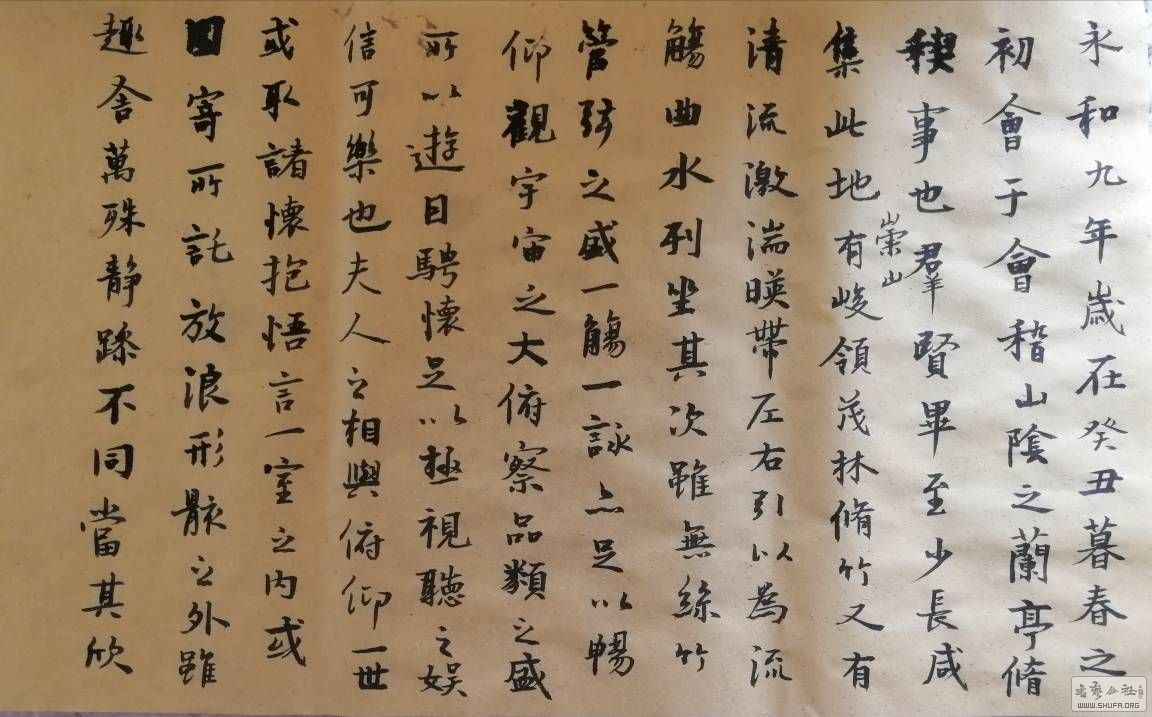 永和九年歲在癸丑暮春之
初會于會稽山陰之蘭亭脩
稧事也羣賢畢至少長咸
集此地有崇山峻領茂林脩竹又有
清流激湍暎帶左右引以為流
觴曲水列坐其次雖無絲竹
管弦之盛一觴一詠亦足以暢
仰觀宇宙之大俯察品類之盛
所以遊目騁懷足以極視聽之娛
信可樂也夫人之相與俯仰一世
或取諸懷抱悟言一室之內或
因寄所託放浪形骸之外雖
趣舍萬殊静躁不同當其欣
書藝公社
WWW.SHUFA.ORG